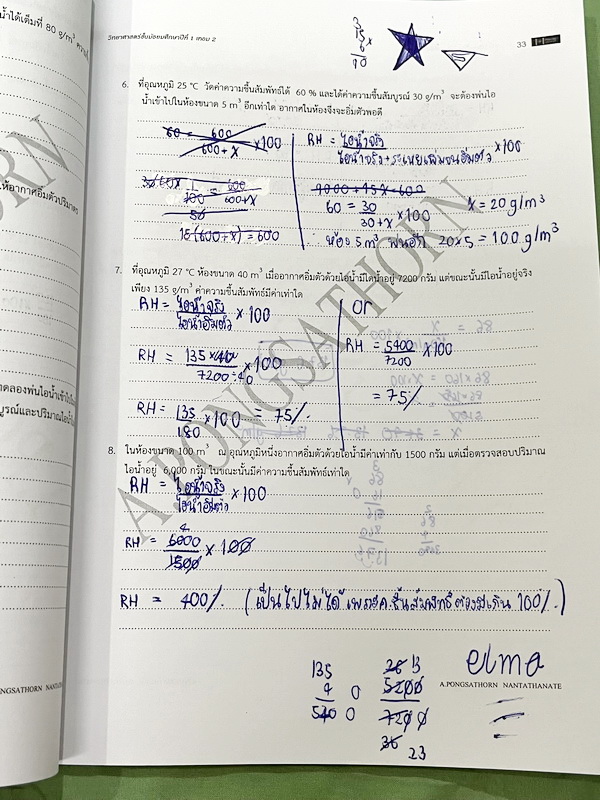 น้ำได้เต็มที่ 80 g/m³
วิทยาศาสตร์ชั้นมัธยมศึกษาปีที่ 1 เทอม 2
33
6. ที่อุณหภูมิ 25 °C วัดค่าความชื้นสัมพัทธ์ได้ 60 % และได้ค่าความชื้นสัมบูรณ์ 30 g/m³ จะต้องพ่นไอ
น้ำเข้าไปในห้องขนาด 5 m³ อีกเท่าใด อากาศในห้องจึงจะอิ่มตัวพอดี
60 = 600 / 600 + x × 100
RH = ไอน้ำจริง / ไอน้ำจริง + ระเหยเพิ่มจนอิ่มตัว × 100
60 = 30 / 30 + x × 100 x = 20 g/m³
15(600+x) = 600
∴ ห้อง 5 m³ พ่นอีก 20×5 = 100 g/m³
7. ที่อุณหภูมิ 27 °C ห้องขนาด 40 m³ เมื่ออากาศอิ่มตัวด้วยไอน้ำมีใดน้ำอยู่ 7200 กรัม แต่ขณะนั้นมีไอน้ำอยู่จริง
เพียง 135 g/m³ ค่าความชื้นสัมพัทธ์มีค่าเท่าใด
RH = ไอน้ำจริง / ไอน้ำอิ่มตัว × 100
or
RH = 135 / 7200 ÷ 40 × 100
RH = 5400 / 7200 × 100
= 75%
RH = 135 / 180 × 100 = 75%
8. ในห้องขนาด 100 m³ ณ อุณหภูมิหนึ่งอากาศอิ่มตัวด้วยไอน้ำมีค่าเท่ากับ 1500 กรัม แต่เมื่อตรวจสอบปริมาณ
ไอน้ำอยู่ 6,000 กรัม ในขณะนั้นมีค่าความชื้นสัมพัทธ์เท่าใด
RH = ไอน้ำจริง / ไอน้ำอิ่มตัว × 100
RH = 6000 / 1500 × 100
RH = 400% (เป็นไปไม่ได้ เพราะค.ชื้นสัมพัทธ์ต้องไม่เกิน 100%)
135
4
540
5200
7200
36
23
elma
A.PONGSATHORN NANTATHANATE
A.PONGSATHORN